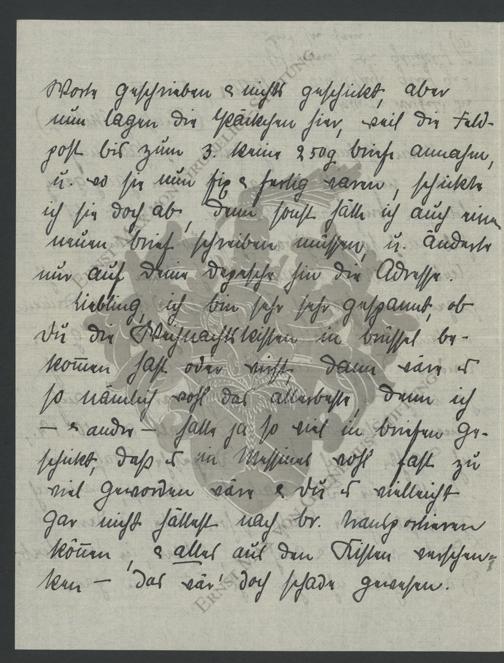 Worte geschrieben & nichts geschickt, aber
nun lagen die Päckchen hier, weil die Feld-
post bis zum 3. keine 250g briefe annahm,
u. wo sie nun fix & fertig waren, schickte
ich sie doch ab, denn sonst hätte ich auch einen
neuen brief schreiben müssen, u. änderte
nur auf Deine Depesche hin die Adresse.
Liebling, ich bin sehr sehr gespannt, ob
Du die Weihnachtskisten in brüssel be-
kom̄en hast oder nicht, dann wäre es
so nämlich wohl das allerbeste, denn ich
– & andre – hatte ja so viel in briefen ge-
schickt, daß es in Messines wohl fast zu
viel geworden wäre & Du es vielleicht
gar nicht hättest nach br. transportieren
kön̄en, & alles aus den Kisten verschen-
ken – das wär' doch schade gewesen.
ERNST MAX VON GRUNELIUS-STIFTUNG